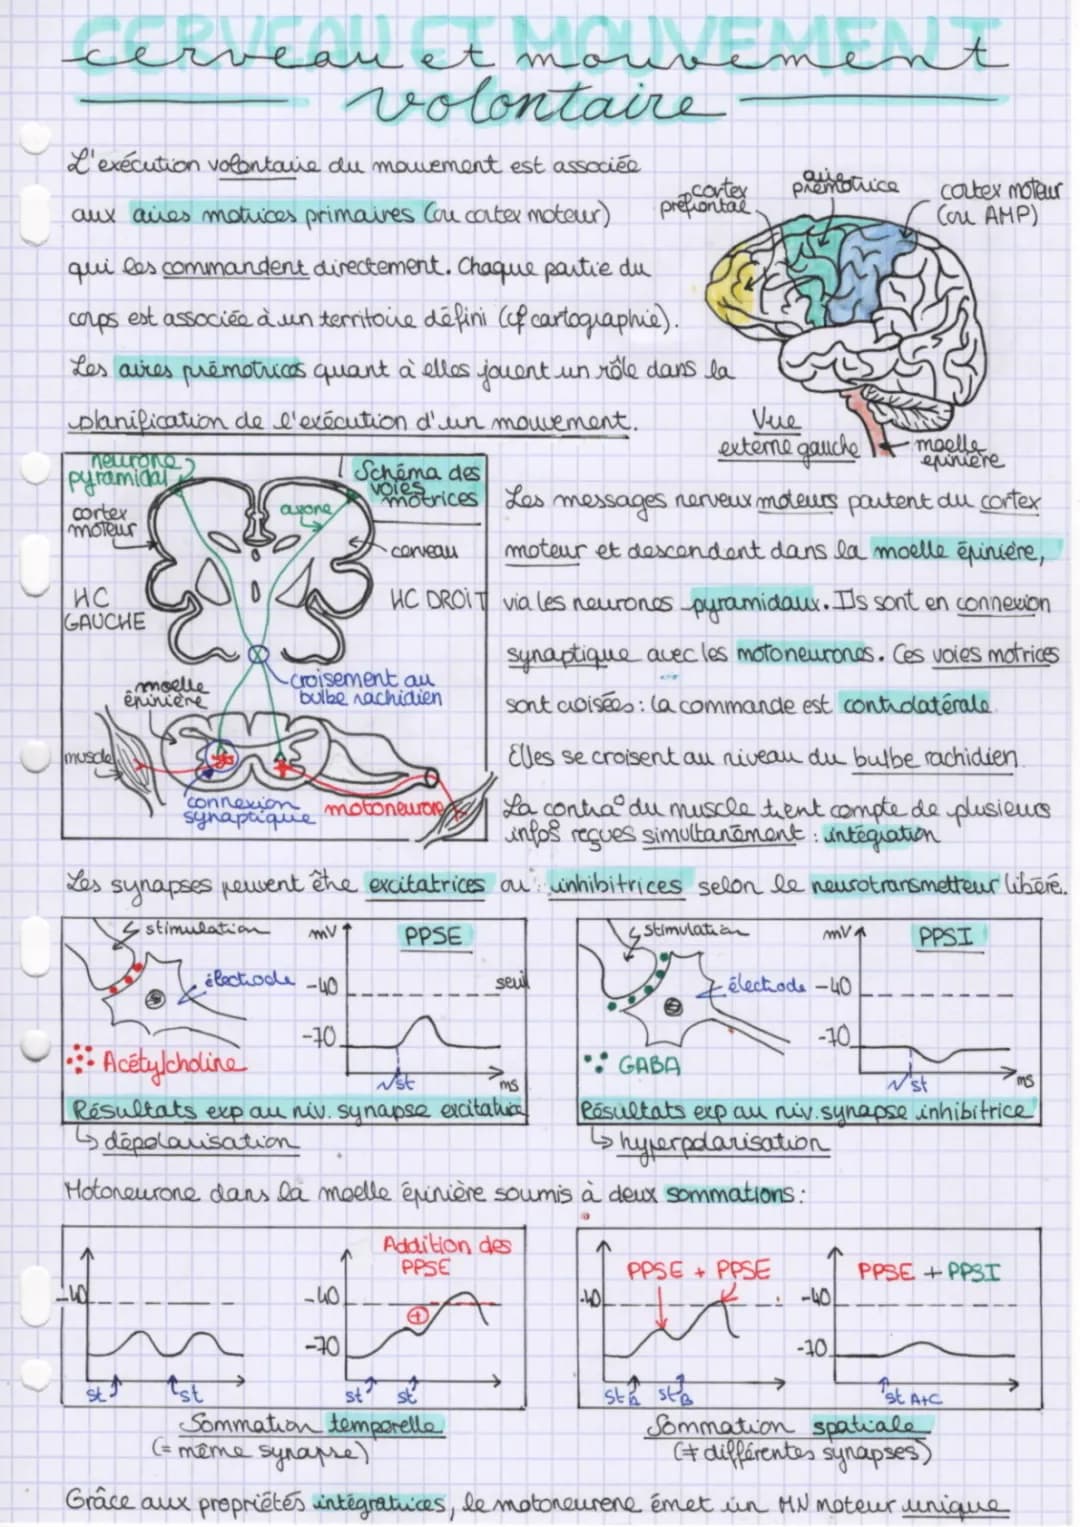 CERVEAU ET MOUVEMENT
cerveau et mouvement
volontaire
L'exécution volontaire du mouvement est associée
aux aires motrices primaires (ou cortex moteur)
qui les commandent directement. Chaque partie du
corps est associée à un territoire défini (cf cartographie).
Les aires prémotrices quant à elles jouent un rôle dans la
planification de l'exécution d'un mouvement.
cortex
préfrontal
aire
prémotrice
cortex moteur
(ou AMP)
Vue
externe gauche
moelle
épinière
neurone
pyramidal
cortex
moteur
axone
Schéma des
voies
motrices
cerveau
HC
GAUCHE
HC DROIT
croisement au
bulbe rachidien
moelle
épinière
muscle
connexion
synaptique
motoneurone
Les messages nerveux moteurs partent du cortex
moteur et descendent dans la moelle épinière,
via les neurones pyramidaux. Ils sont en connexion
synaptique avec les motoneurones. Ces voies motrices
sont croisées : la commande est controlatérale
Elles se croisent au niveau du bulbe rachidien.
La contra° du muscle tient compte de plusieurs
infos reçues simultanément : intégration
Les synapses peuvent être excitatrices ou inhibitrices selon le neurotransmetteur libéré.
stimulation
électrode
Acétylcholine
mV
PPSE
-40
seuil
-70
st
ms
Résultats exp au niv. synapse excitatrice
↳ dépolarisation
stimulation
électrode
GABA
mV
PPSI
-40
-70
st
ms
Résultats exp au niv. synapse inhibitrice
↳ hyperpolarisation
Motoneurone dans la moelle épinière soumis à deux sommations :
-40
st
st
Addition des
PPSE
-40
+
-70
st
st
Sommation temporelle
(= même synapse)
PPSE + PPSE
-40
st A
st B
PPSE + PPSI
-40
-70
st A+C
Sommation spatiale
(≠ différentes synapses)
Grâce aux propriétés intégratrices, le motoneurone émet un MN moteur unique